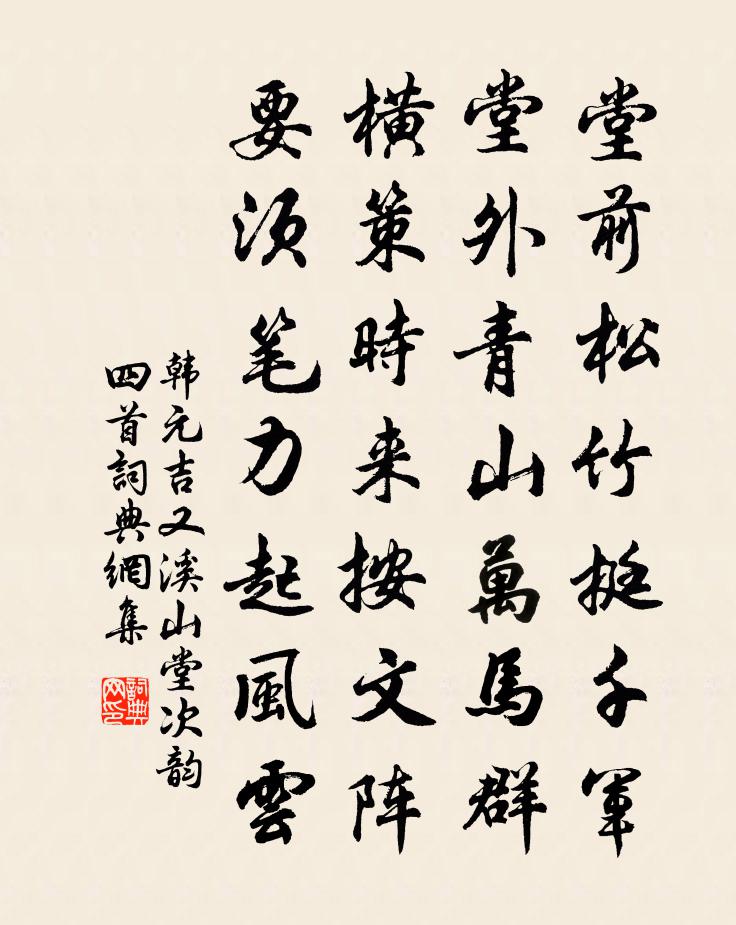 堂前松竹挺千军
堂外青山萬馬群
橫策時来按文阵
要须笔力起風雲
韩元吉又溪山堂次韵
四首詞典網集
詞典网印